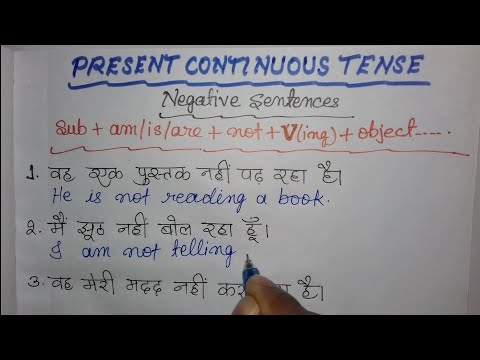 PRESENT CONTINUOUS TENSE
Negative Sentences
Sub + am/is/are + not + V(ing) + object.....
1. वह एक पुस्तक नहीं पढ़ रहा है।
He is not reading a book.
2. मैं झूठ नहीं बोल रहा हूँ।
I am not telling
3. वह मेरी मदद नहीं है।